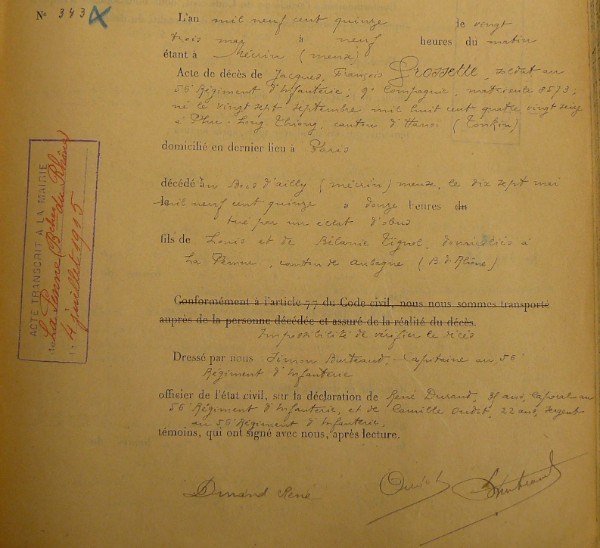 N° 343
L'an mil neuf cent quinze le vingt
trois mai à neuf heures du matin
étant à Mécrin (meuse)
Acte de décès de Jacques, François Grosselle, soldat au
56e Régiment d'Infanterie, 9e Compagnie, matricule 8573;
né le vingt sept septembre mil huit cent quatre vingt
à Phu-Long Thiong, canton d'Hanoï (Tonkin)
domicilié en dernier lieu à Paris
décédé au Bois d'ailly (mécrin) meuse, le dix sept mai
mil neuf cent quinze à douze heures du
tué par un éclat d'obus
fils de Louis et de Mélanie Tignol, domiciliés à
La Penne, canton de Aubagne (B. d. Rhône)
Conformément à l'article 77 du Code civil, nous nous sommes transporté
auprès de la personne décédée et assuré de la réalité du décès.
Impossibilité de vérifier le décès
Dressé par nous Simon Bertrand, Capitaine au 56e
Régiment d'Infanterie
officier de l'état civil, sur la déclaration de René Durand, ans, caporal au
56e Régiment d'Infanterie, et de Camille Oudot, 22 ans, sergent
au 56e Régiment d'Infanterie.
témoins, qui ont signé avec nous, après lecture.
Durand René
ACTE TRANSCRIT A LA MAIRIE
La Penne Bches du Rhône
4 juillet 1915